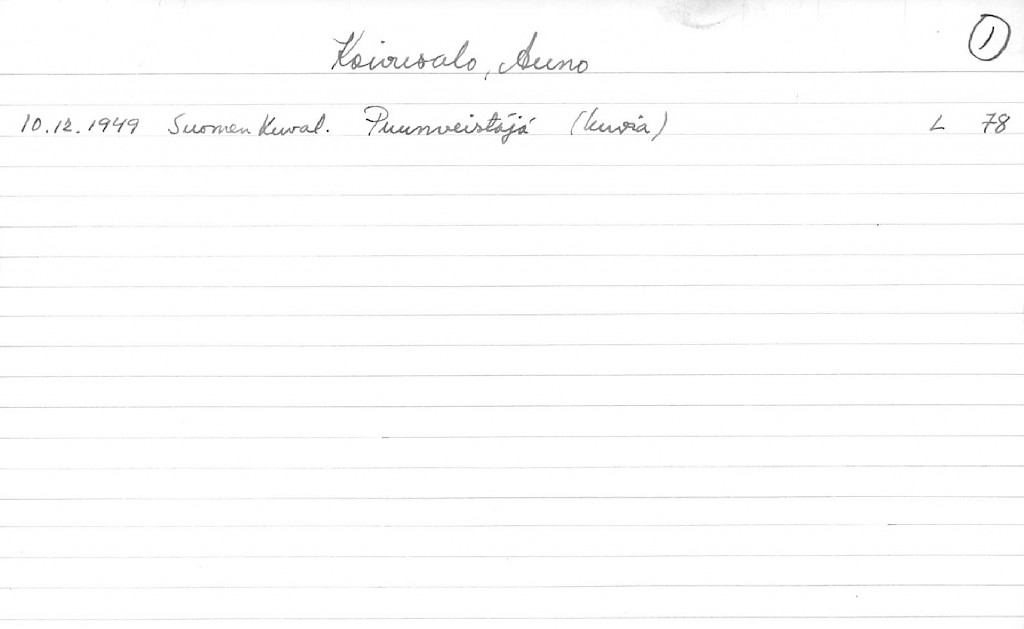 Koivusalo, Auno 1
10.12.1949 Suomen Kuval. Puunveistäjä (kuvia) L 78